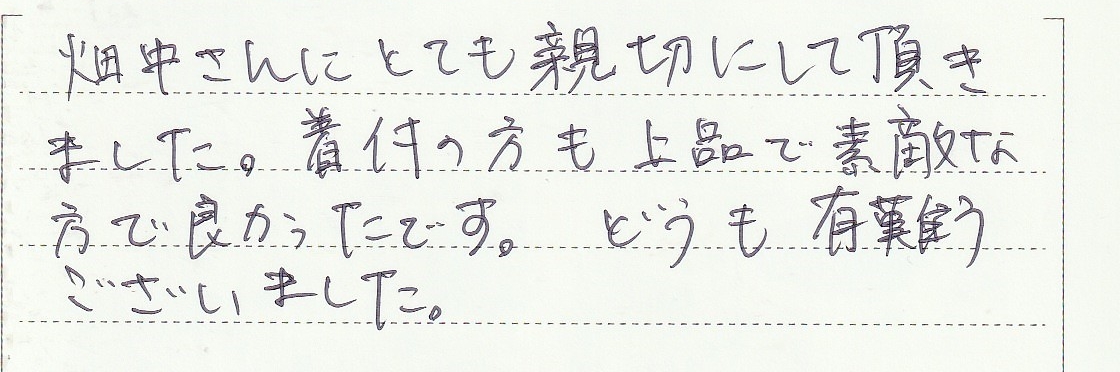 畑中さんにとても親切にして頂き
ました。着付の方も上品で素敵な
方で良かったです。 どうも有難う
ございました。